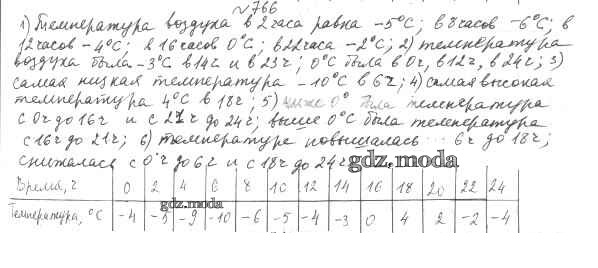 №766
1) Температура воздуха в 2 часа равна -5°С; в 8 часов -6°С; в
12 часов -4°С; в 16 часов 0°С; в 22 часа -2°С; 2) температура
воздуха была -3°С в 14ч и в 23ч; 0°С была в 0ч, в 12ч, в 24ч; 3)
самая низкая температура -10°С в 6ч; 4) самая высокая
температура 4°С в 18ч; 5) ниже 0° была температура
с 0ч до 16ч и с 21ч до 24ч; выше 0°С была температура
с 16ч до 21ч; 6) температура повышалась с 6ч до 18ч;
снижалась с 0ч до 6ч и с 18ч до 24ч
gdz.moda
Время, ч 0 2 4 6 8 10 12 14 16 18 20 22 24
gdz.moda
Температура, °С -4 -5 -9 -10 -6 -5 -4 -3 0 4 2 -2 -4